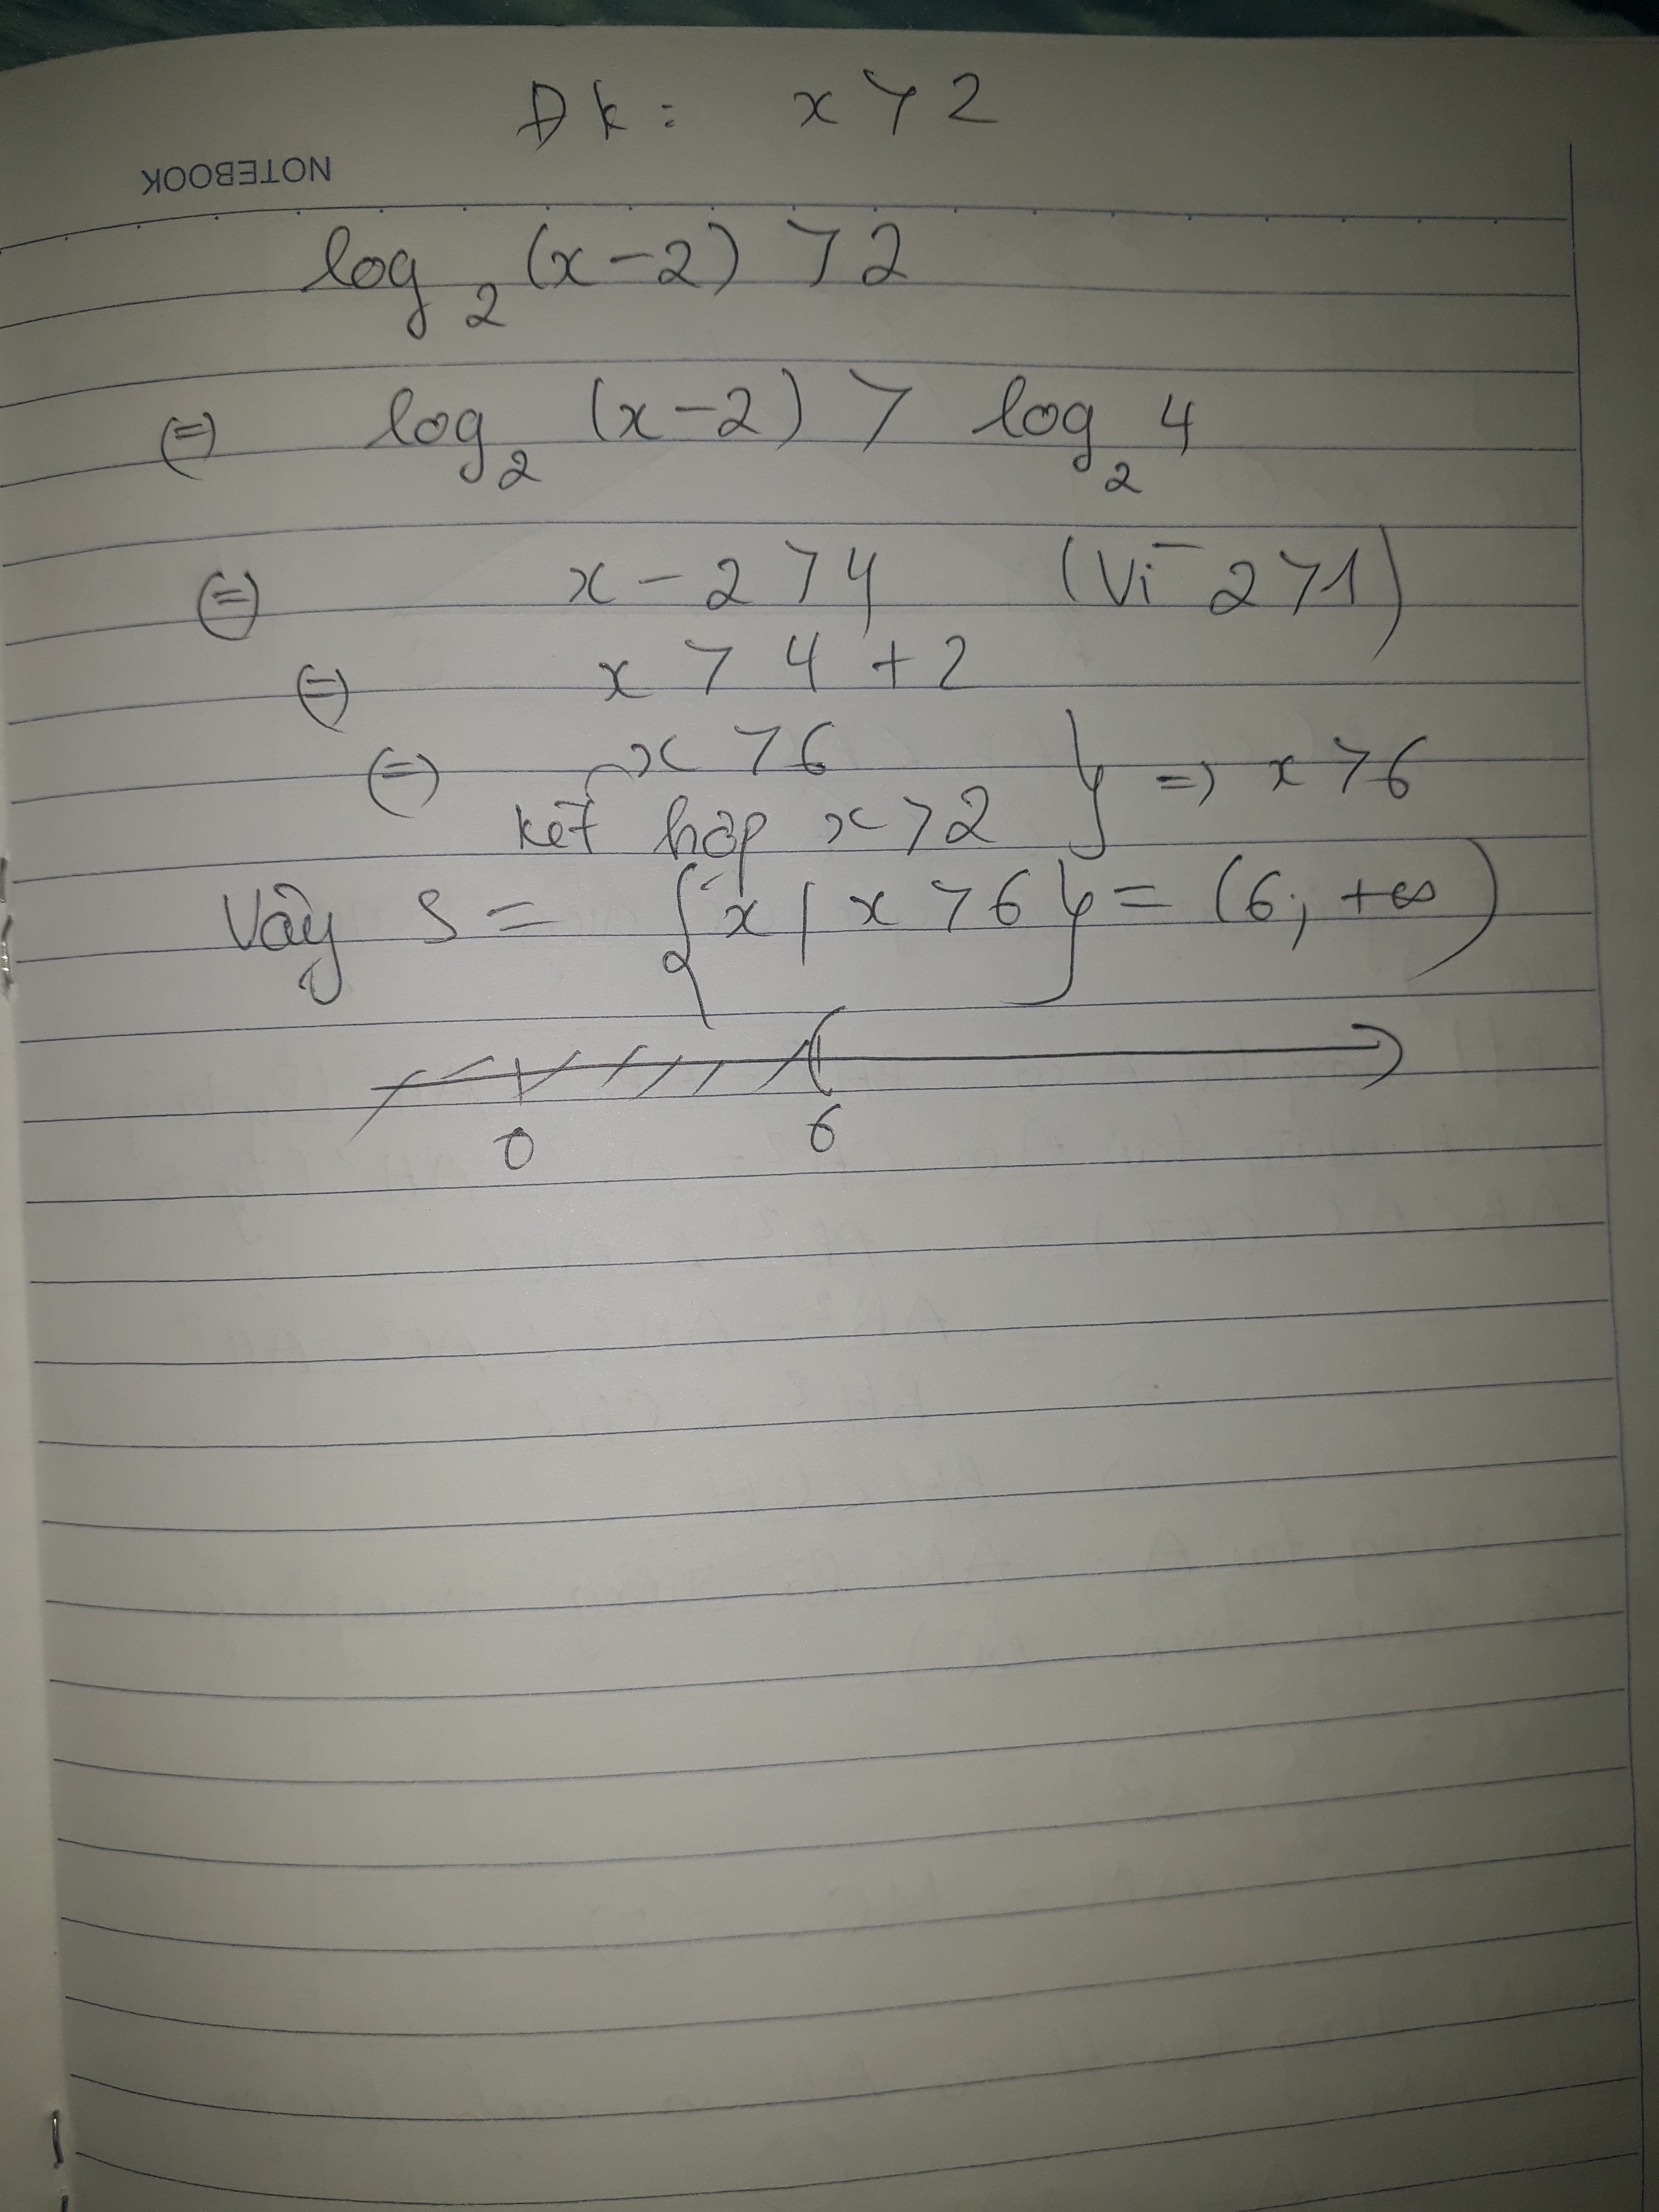 Đk: x > 2
NOTEBOOK
log₂ (x-2) > 2
(=) log₂ (x-2) > log₂ 4
(=) x - 2 > 4 (Vì 2 > 1)
(=) x > 4 + 2
(=) x > 6
kết hợp x > 2 } => x > 6
Vậy S = {x / x > 6} = (6; +∞)
0 6